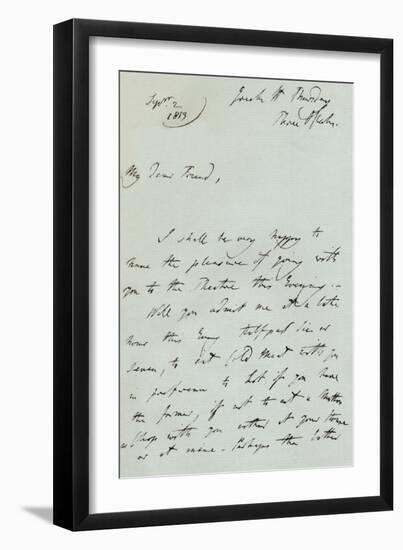 Septr. 2
1813
Gower St Thursday
Three O'clock.
My Dear Friend,
I shall be very happy to
have the pleasure of going with
you to the Theatre this Evening.—
Will you admit me at a late
hour this Eveng half past Six or
Seven, to eat Cold Meat with you
in preference to hot if you have
the former, if not to eat a Mutton
Chop with you either at your House
or at mine - Perhaps the latter